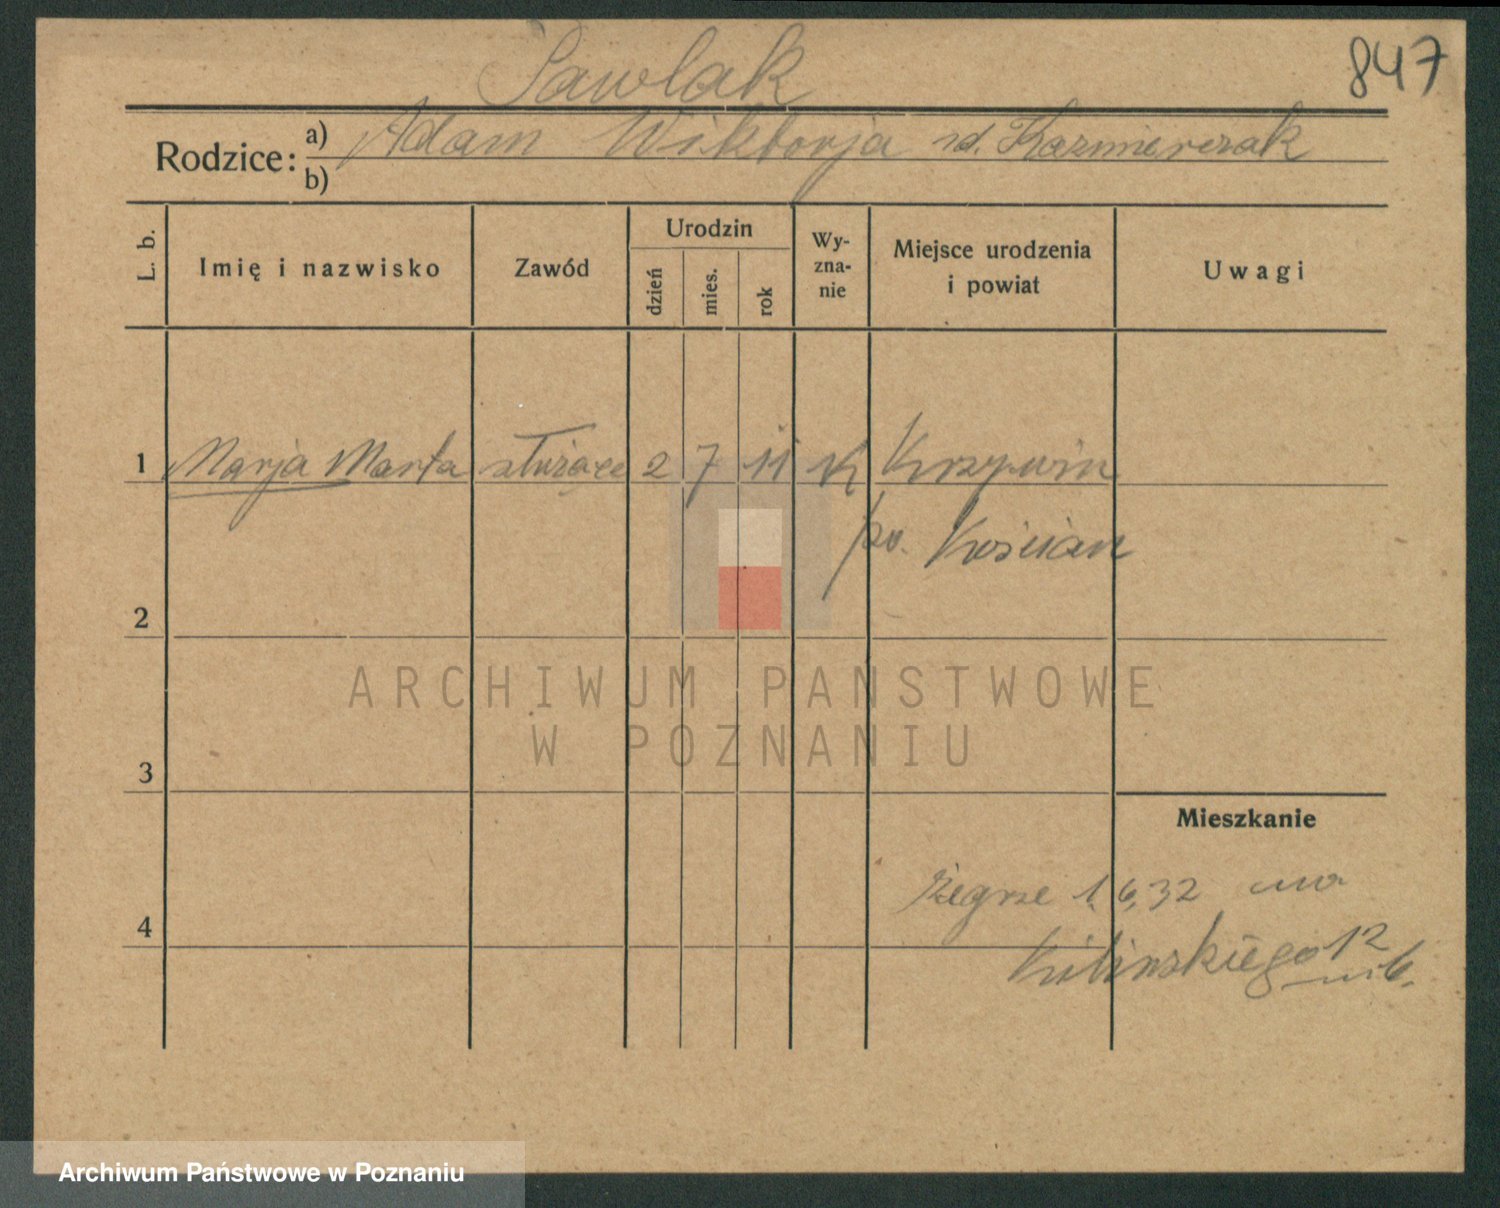 847
Pawlak
Rodzice: a) Adam Wiktorja rd. Kazmierczak
b)
L. b.
Imię i nazwisko
Zawód
Urodzin
dzień
mies.
rok
Wy-
zna-
nie
Miejsce urodzenia
i powiat
Uwagi
1 Marja Marta służąca 2 7 11 K Krzywin
po. Kościan
2
ARCHIWUM PAŃSTWOWE
W POZNANIU
3
Mieszkanie
Żegrze 1.6.32 na
4
Kilinskiego 12
m 6.
Archiwum Państwowe w Poznaniu